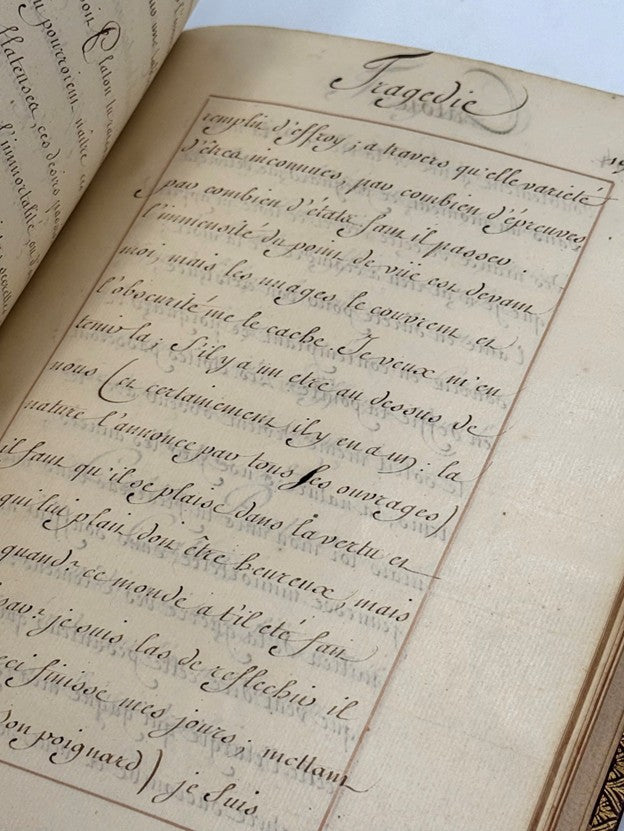 Platon tu
pourroient naitre ces
flateuses, ces desirs
l'immortalité, ou
Tragedie
19
remplie d'effroy ; a travers qu'elle varieté
d'êtres inconnues, par combien d'épreuves
par combien d'états faut il passer :
l'immensité du point de vüe est devant
moi, mais les nuages le couvrent et
l'obscurité me le cache. Je veux m'en
tenir la ; S'il y a un etre au dessus de
nous (et certainement il y en a un) : la
nature l'annonce par tous ses ouvrages)
il faut qu'il se plaise dans la vertu et
qui lui plait doit être heureux, mais
quand? ce monde a t'il eté fait
je suis las de reflechir il
finisse mes jours ; mettant
son poignard) je suis